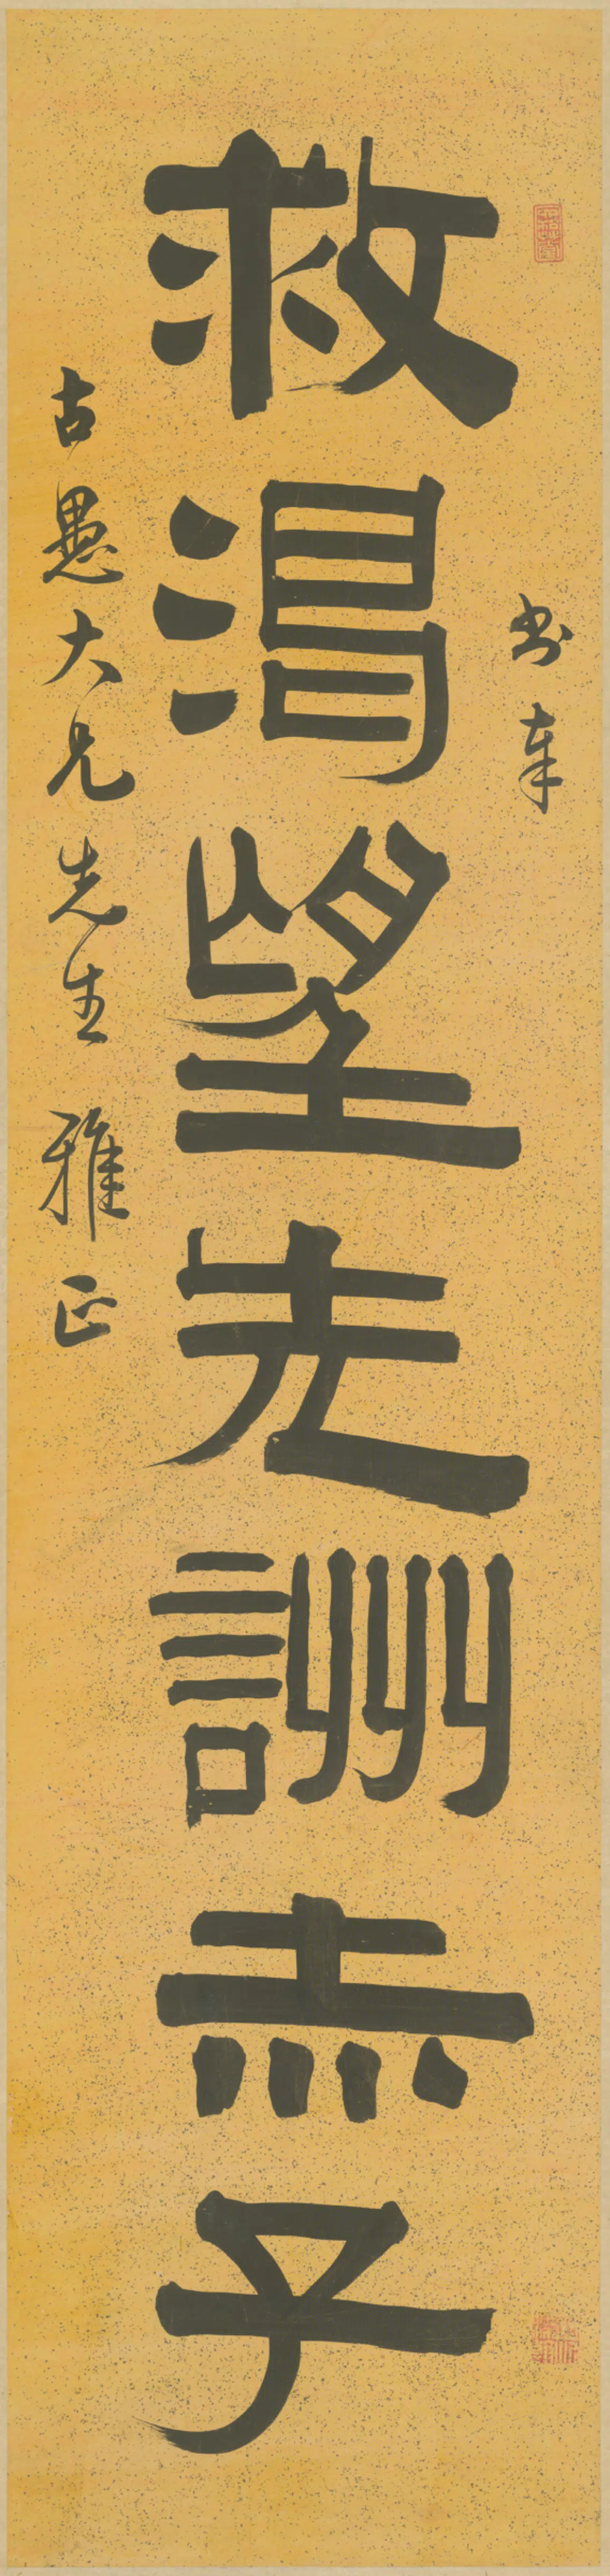 書奉
救渴望先詶赤子
古愚大兄先生雅正